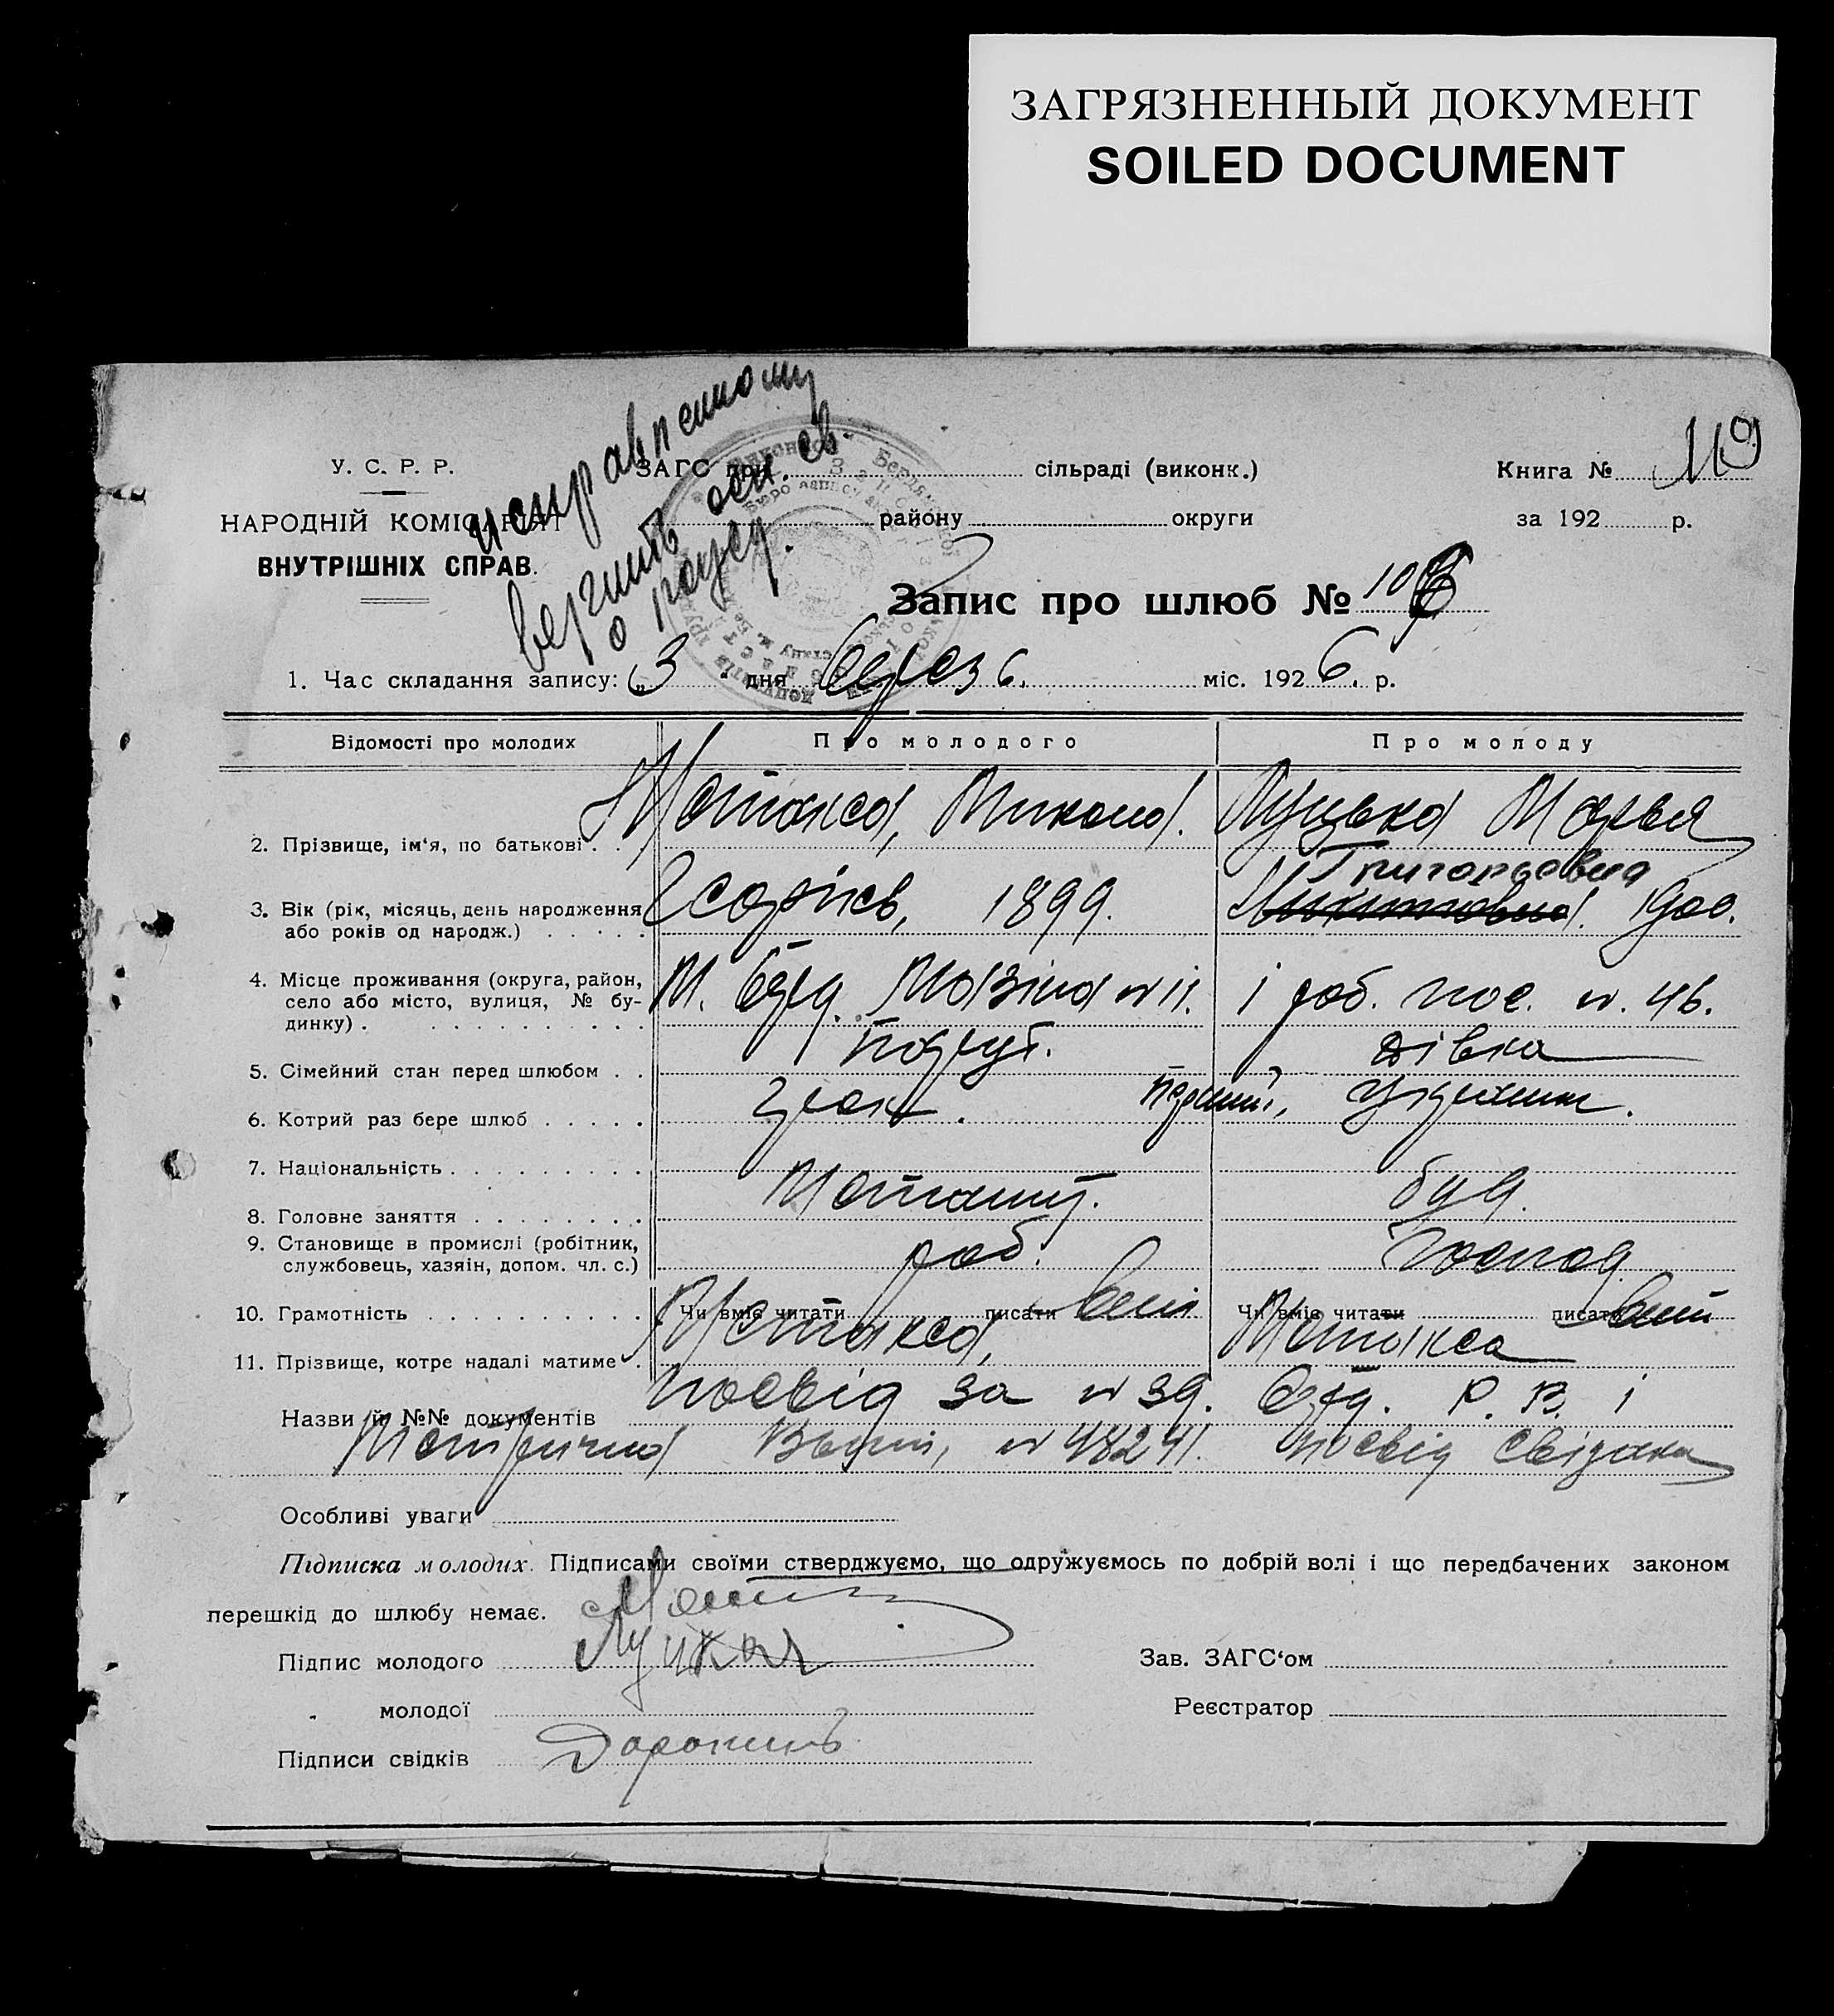 ЗАГРЯЗНЕННЫЙ ДОКУМЕНТ
SOILED DOCUMENT
У. С. Р. Р.
НАРОДНІЙ КОМІСАРІЯТ
ВНУТРІШНІХ СПРАВ.
исправленному
верить осн. св.
о
ЗАГС при сільраді (виконк.)
району округи
Книга № 119
за 192 р.
Запис про шлюб № 106
1. Час складання запису: „3 " дня берез. міс. 1926. р.
Відомості про молодих Про молодого Про молоду
2. Прізвище, ім'я, по батькові . . Метакса, Микола. Луцька Марья
Григорьевна
3. Вік (рік, місяць, день народження або років од народж.) . . . . . 1899. Микитовна. 1900.
4. Місце проживання (округа, район, село або місто, вулиця, № будинку) . . . . . . . . . . . М. Берд. Мазіна № 11. 1 роб. пос. № 46.
5. Сімейний стан перед шлюбом . . паруб. дівка
6. Котрий раз бере шлюб . . . . . грек. перший, украинк.
7. Національність . . . . . . . . .
8. Головне заняття . . . . . . . . буд.
9. Становище в промислі (робітник, службовець, хазяін, допом. чл. с.) роб. господ.
10. Грамотність . . . . . . . . . . Чи вміє читати писати вміє Чи вміє читати писати вміє
11. Прізвище, котре надалі матиме . Метакса, Метакса
Назви й №№ документів посвід за № 39. Берд. Р. В. і
Метрична Выпис, № 48241. посвід свідака
Особливі уваги
Підписка молодих. Підписами своїми стверджуємо, що одружуємось по добрій волі і що передбачених законом
перешкід до шлюбу немає.
Підпис молодого Луцкая
Зав. ЗАГС'ом
„ молодої
Реєстратор
Підписи свідків